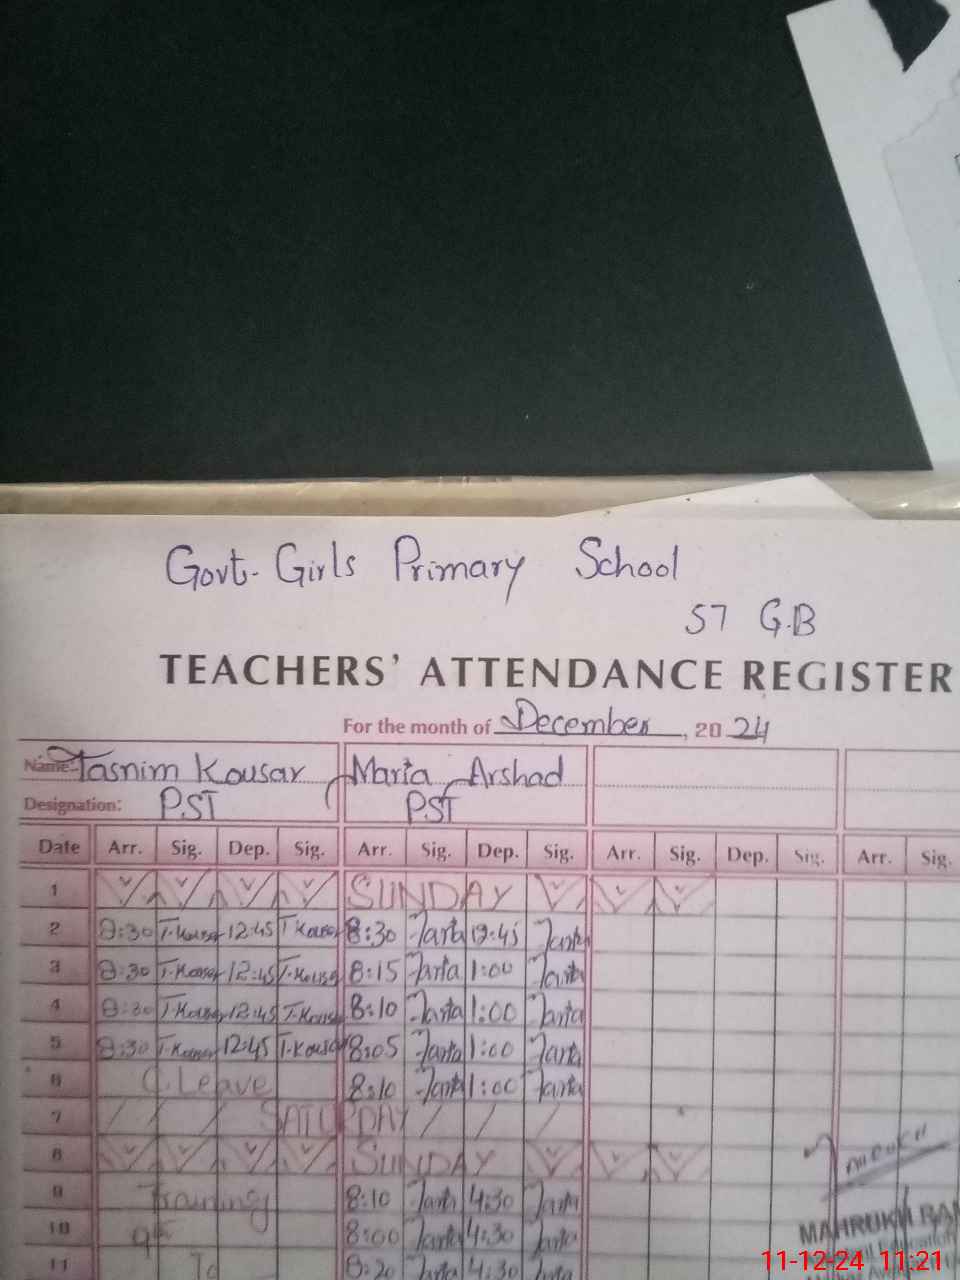 Govt. Girls Primary School
57 G.B
TEACHERS' ATTENDANCE REGISTER
For the month of December, 2024
Name: Tasnim Kousar Maria Arshad
Designation: PST PST
Date Arr. Sig. Dep. Sig. Arr. Sig. Dep. Sig. Arr. Sig. Dep. Sig. Arr. Sig.
1 SUNDAY
2 8:30 T.Kousar 12:45 T Kousar 8:30 12:45
3 8:30 T.Kousar 12:45 T.Kousar 8:15 1:00
4 8:30 T.Kousar 12:45 T.Kousar 8:10 1:00
5 8:30 T.Kousar 12:45 T.Kousar 8:05 1:00
6 C.Leave 8:10 1:00
7 SATURDAY
8 SUNDAY
9 Training 8:10 4:30
10 8:00 4:30
11 To 8:20 4:30
MAHRUKH
11-12-24 11:21